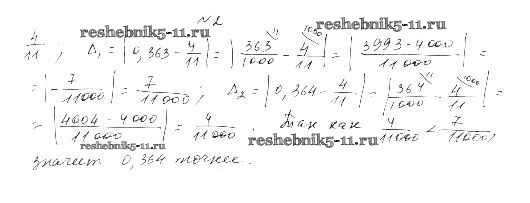 №2
reshebnik5-11.ru
reshebnik5-11.ru
4/11 ; Δ₁ = |0,363 - 4/11| = |363/1000 - 4/11| = |3993-4000/11000| =
= |-7/11000| = 7/11000 ; Δ₂ = |0,364 - 4/11| = |364/1000 - 4/11| =
= |4004-4000/11000| = 4/11000 . Так как 4/11000 < 7/11000,
reshebnik5-11.ru
reshebnik5-11.ru
значит 0,364 точнее.